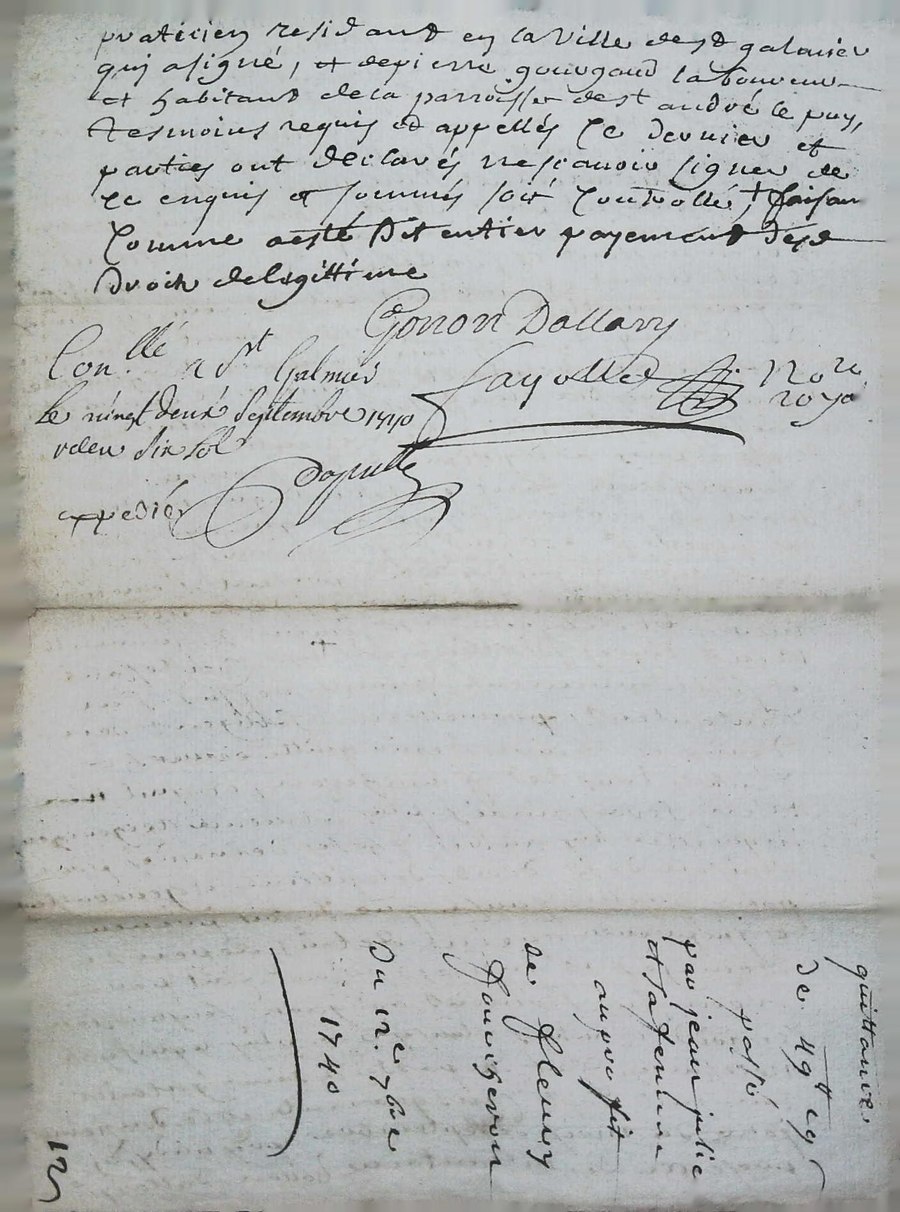 praticien residant en la Ville de st galmier
qui a signé, et de pierre gourgaud laboureur
et habitant de la parroisse de st andré le puy,
tesmoins requis et appellés le dernier et
parties ont declarés ne scavoir signer de
ce enquis et sommés soit controllé, + faisan
comme a esté dit entier payement desd
droits de legittime
Gonon Dallary
Con.llé a St Galmier
fayolle Nore
le vingt deux septembre 1740
royal
receu six sol
expedié
quittance
de 49lt 19s
passé
par jean julie
et sa femme
au proffit
de fleury
du 12e 7bre
1740
12s